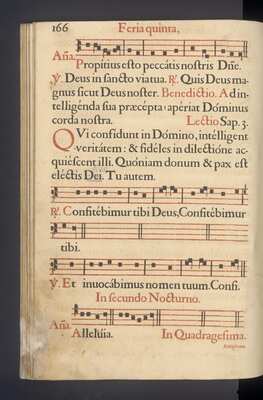 166 Feria quinta,
Aña. Propitius esto peccátis nostris Dñe.
℣. Deus in sancto via tua. ℟. Quis Deus ma-
gnus sicut Deus noster. Benedictio. Ad in-
telligénda sua præcépta apériat Dóminus
corda nostra. Lectio Sap. 3.
QVi confidunt in Dómino, intélligent
veritátem: & fidéles in dilectióne ac-
quiéscent illi. Quóniam donum & pax est
eléctis Dei. Tu autem.
℟. Confitébimur tibi Deus, Confitébimur
tibi.
℣. Et inuocábimus nomen tuum. Confi.
In secundo Nocturno.
Aña. Allelúia. In Quadragesima.